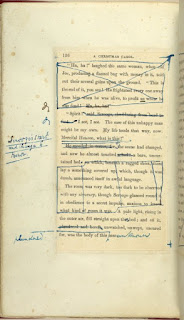 A CHRISTMAS CAROL.
"Ha, ha!" laughed the same woman, when old
Joe, producing a flannel bag with money in it, told
out their several gains upon the ground. "This is
the end of it, you see! He frightened every one away
from him when he was alive, to profit us when he
was dead! Ha, ha, ha!"
"Spirit!" said Scrooge, shuddering from head to
foot. "I see, I see. The case of this unhappy man
might be my own. My life tends that way, now.
Merciful Heaven, what is this!"
He recoiled in terror, for the scene had changed,
and now he almost touched a bed: a bare, uncur-
tained bed: on which, beneath a ragged sheet, there
lay a something covered up, which, though it was
dumb, announced itself in awful language.
The room was very dark, too dark to be observed
with any accuracy, though Scrooge glanced round it
in obedience to a secret impulse, anxious to know
what kind of room it was. A pale light, rising in
the outer air, fell straight upon the bed; and on it,
plundered and bereft, unwatched, unwept, uncared
for, was the body of this